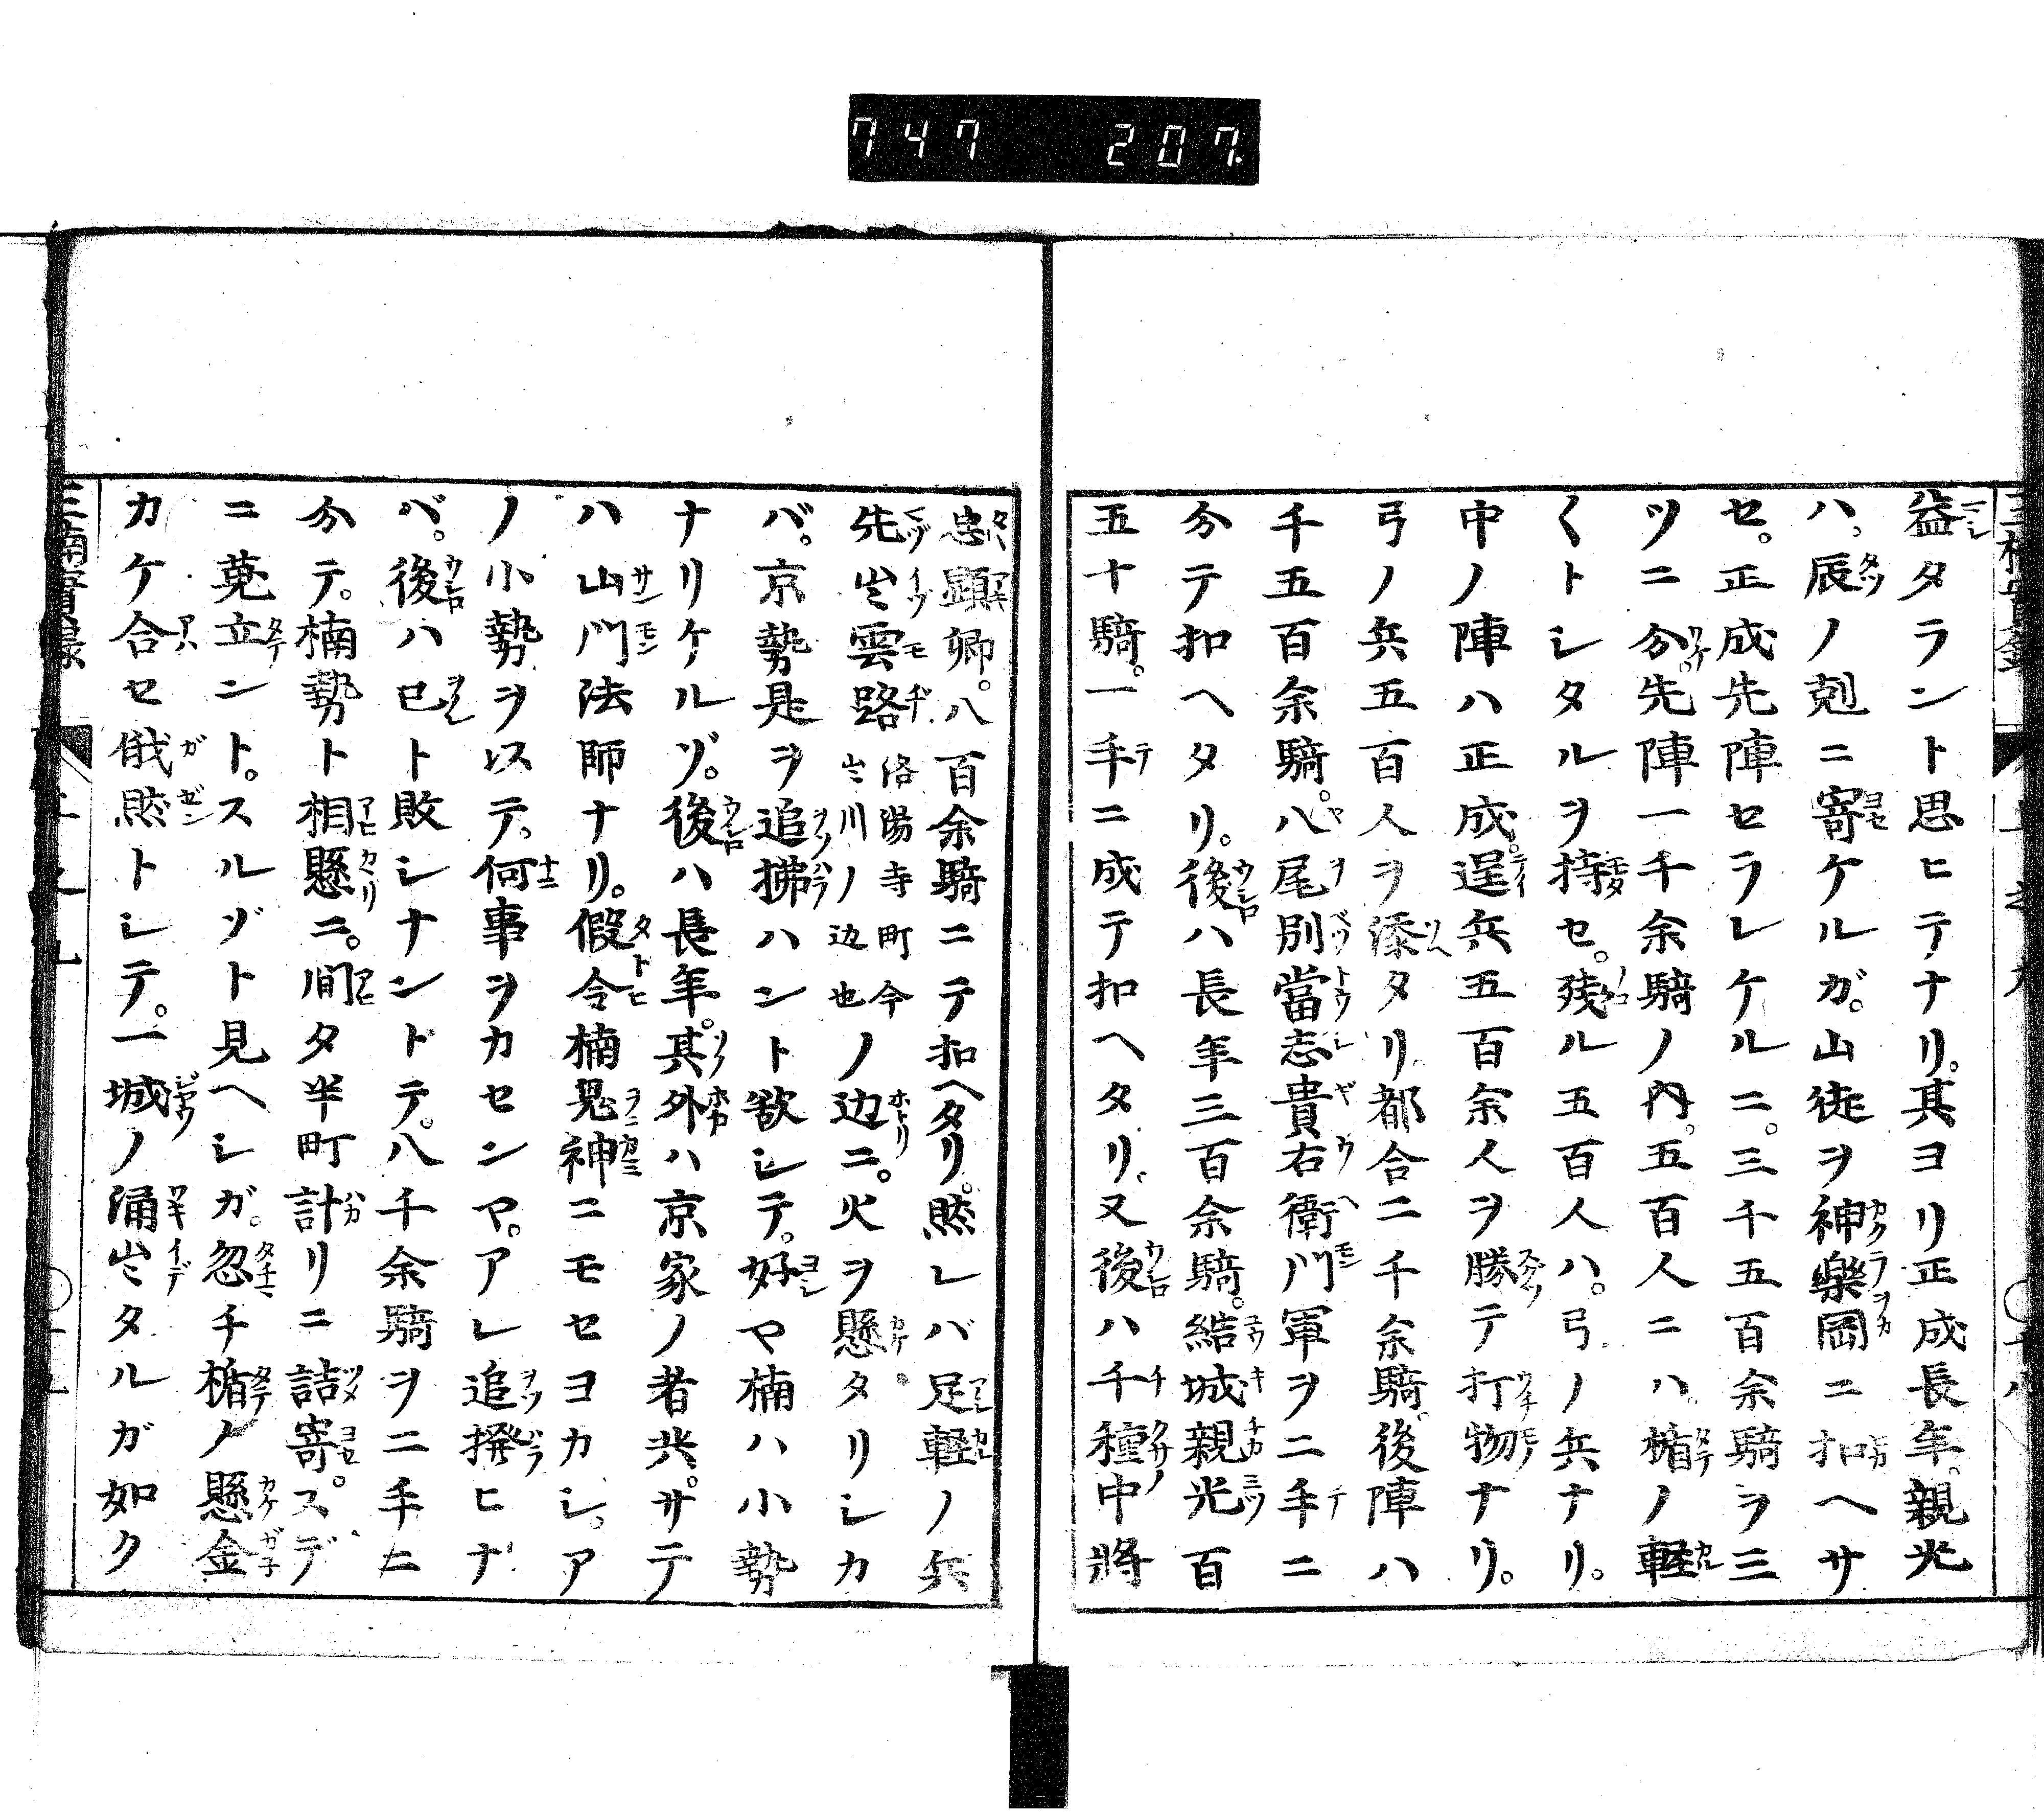 747 207.
益タラント思ヒテナリ。其ヨリ正成長年。親光
ハ。辰ノ剋ニ寄ケルガ。山徒ヲ神樂岡ニ扣ヘサ
セ。正成先陣セラレケルニ。三千五百余騎ヲ三
ツニ分。先陣一千余騎ノ内。五百人ニハ。楯ノ軽
〱トシタルヲ持セ。残ル五百人ハ。弓ノ兵ナリ。
中ノ陣ハ正成。逞兵五百余人ヲ勝テ打物ナリ。
弓ノ兵五百人ヲ添タリ都合二千余騎。後陣ハ
千五百余騎。八尾別當志貴右衛門軍ヲ二手ニ
分テ扣ヘタリ。後ハ長年三百余騎。結城親光百
五十騎。一手ニ成テ扣ヘタリ。又後ハ千種中將
忠顕卿。八百余騎ニテ扣ヘタリ。然レバ足軽ノ兵
先出雲路洛陽寺町今出川ノ辺也ノ辺ニ。火ヲ懸タリシカ
バ。京勢是ヲ追拂ハント欲シテ。好マ楠ハ小勢
ナリケルゾ。後ハ長年。其外ハ京家ノ者共。サテ
ハ山門法師ナリ。假令楠鬼神ニモセヨカシ。ア
ノ小勢ヲ以テ。何事ヲカセンマ。アレ追撥ヒナ
バ。後ハ已ト敗シナンドテ。八千余騎ヲ二手ニ
分テ。楠勢ト相懸ニ。間タ半町計リニ詰寄。スデ
ニ蒐立ント。スルゾト見ヘシガ。忽チ楯ノ懸金
カケ合セ俄然トシテ。一城ノ涌出タルガ如ク
三楠實録